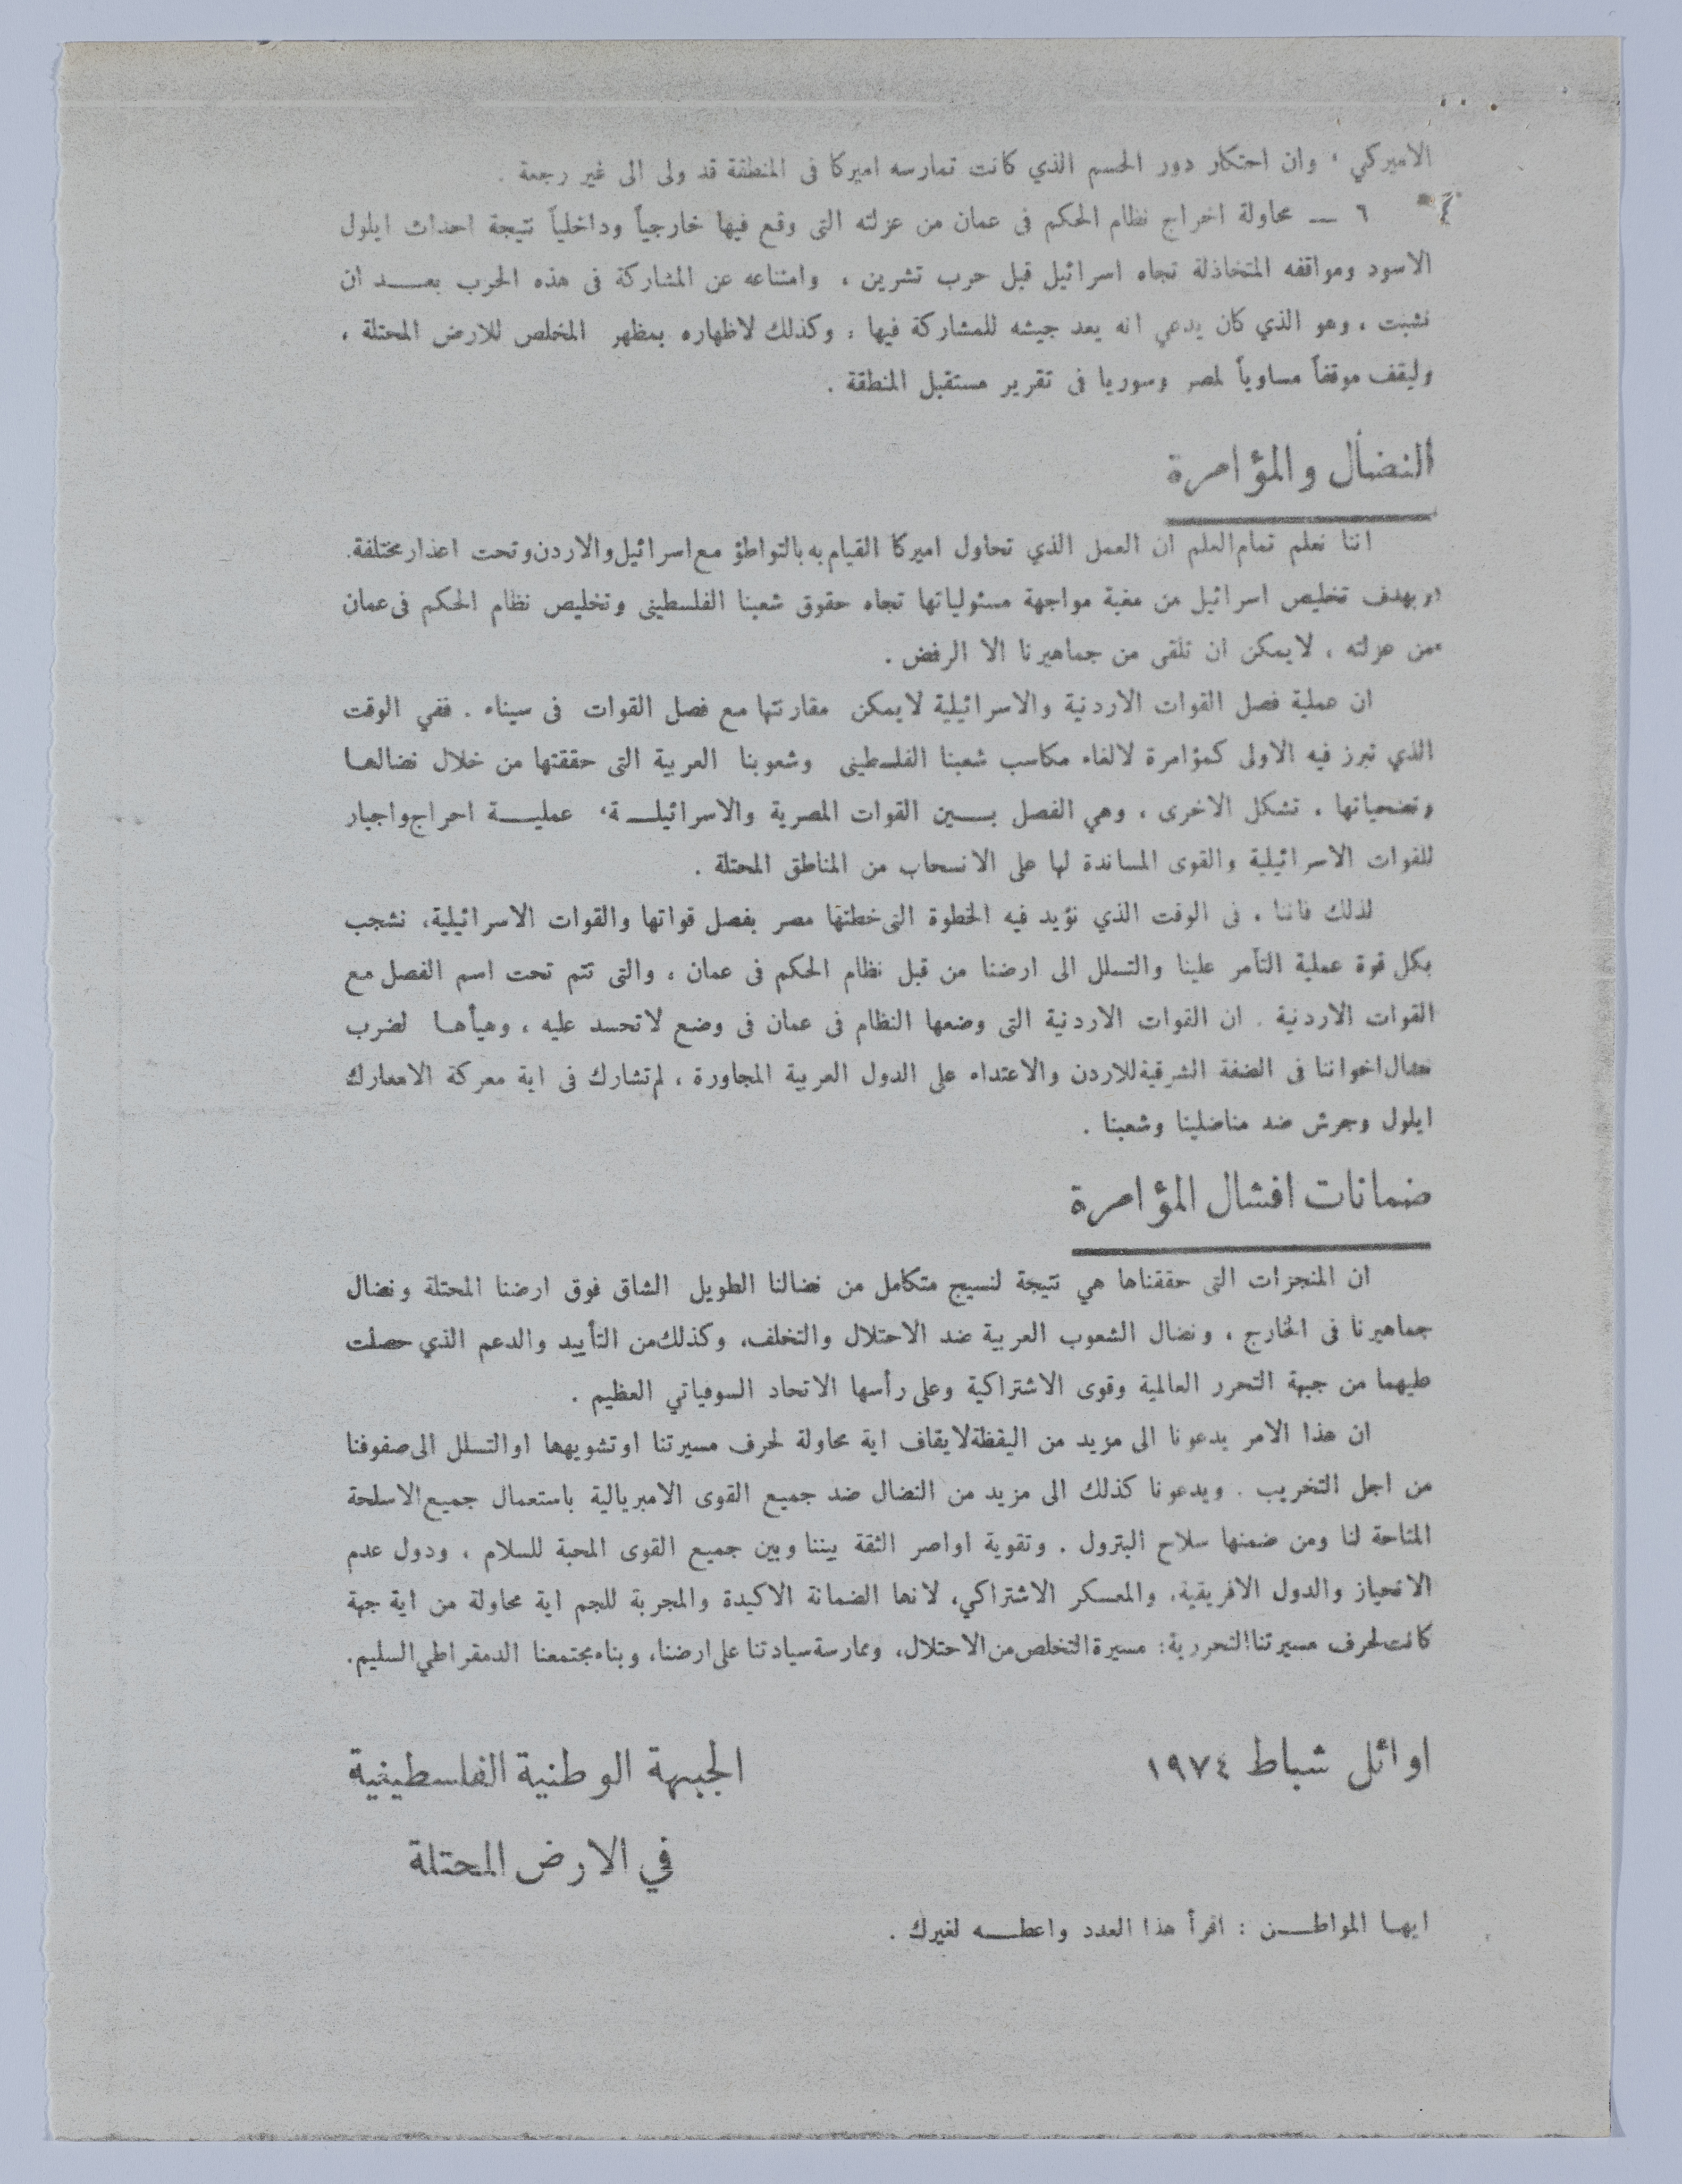 الاميركي ، وان احتكار دور الحسم الذي كانت تمارسه اميركا فى المنطقة قد ولى الى غير رجعة .
٦ ــ محاولة اخراج نظام الحكم فى عمان من عزلته التى وقع فيها خارجياً وداخلياً نتيجة احداث ايلول
الاسود ومواقفه المتخاذلة تجاه اسرائيل قبل حرب تشرين ، وامتناعه عن المشاركة فى هذه الحرب بعـــد ان
نشبت ، وهو الذي كان يدعي انه يعد جيشه للمشاركة فيها ، وكذلك لاظهاره بمظهر المخلص للارض المحتلة ،
وليقف موقفاً مساوياً لمصر وسوريا فى تقرير مستقبل المنطقة .
النضال والمؤامرة
اننا نعلم تمام العلم ان العمل الذي تحاول اميركا القيام به بالتواطؤ مع اسرائيل والاردن وتحت اعذار مختلفة.
وبهدف تخليص اسرائيل من مغبة مواجهة مسئولياتها تجاه حقوق شعبنا الفلسطينى وتخليص نظام الحكم فى عمان
من عزلته ، لايمكن ان تلقى من جماهيرنا الا الرفض .
ان عملية فصل القوات الاردنية والاسرائيلية لايمكن مقارنتها مع فصل القوات فى سيناء . ففي الوقت
الذي تبرز فيه الاولى كمؤامرة لالغاء مكاسب شعبنا الفلسطينى وشعوبنا العربية التى حققتها من خلال نضالها
وتضحياتها ، تشكل الاخرى ، وهي الفصل بـــين القوات المصرية والاسرائيلـــة، عمليـــة احراج واجبار
للقوات الاسرائيلية والقوى المساندة لها على الانسحاب من المناطق المحتلة .
لذلك فاننا ، فى الوقت الذي نؤيد فيه الخطوة التى خطتها مصر بفصل قواتها والقوات الاسرائيلية، نشجب
بكل قوة عملية التآمر علينا والتسلل الى ارضنا من قبل نظام الحكم فى عمان ، والتى تتم تحت اسم الفصل مع
القوات الاردنية . ان القوات الاردنية التى وضعها النظام فى عمان فى وضع لاتحسد عليه ، وهيأهـا لضرب
نضال اخواننا فى الضفة الشرقية للاردن والاعتداء على الدول العربية المجاورة ، لم تشارك فى اية معركة الامعارك
ايلول وجرش ضد مناضلينا وشعبنا .
ضمانات افشال المؤامرة
ان المنجزات التى حققناها هي نتيجة لنسيج متكامل من نضالنا الطويل الشاق فوق ارضنا المحتلة ونضال
جماهيرنا فى الخارج ، ونضال الشعوب العربية ضد الاحتلال والتخلف، وكذلك من التأييد والدعم الذي حصلت
عليهما من جبهة التحرر العالمية وقوى الاشتراكية وعلى رأسها الاتحاد السوفياتي العظيم .
ان هذا الامر يدعونا الى مزيد من اليقظة لايقاف اية محاولة لحرف مسيرتنا او تشويهها او التسلل الى صفوفنا
من اجل التخريب . ويدعونا كذلك الى مزيد من النضال ضد جميع القوى الامبريالية باستعمال جميع الاسلحة
المتاحة لنا ومن ضمنها سلاح البترول . وتقوية اواصر الثقة بيننا وبين جميع القوى المحبة للسلام ، ودول عدم
الانحياز والدول الافريقية، والمعسكر الاشتراكي، لانها الضمانة الاكيدة والمجربة للجم اية محاولة من اية جهة
كانت لحرف مسيرتنا التحررية: مسيرة التخلص من الاحتلال، وممارسة سيادتنا على ارضنا، وبناء مجتمعنا الدمقراطي السليم.
اوائل شباط ١٩٧٤
الجبهة الوطنية الفلسطينية
في الارض المحتلة
ايها المواطـــن : اقرأ هذا العدد واعطـــه لغيرك .